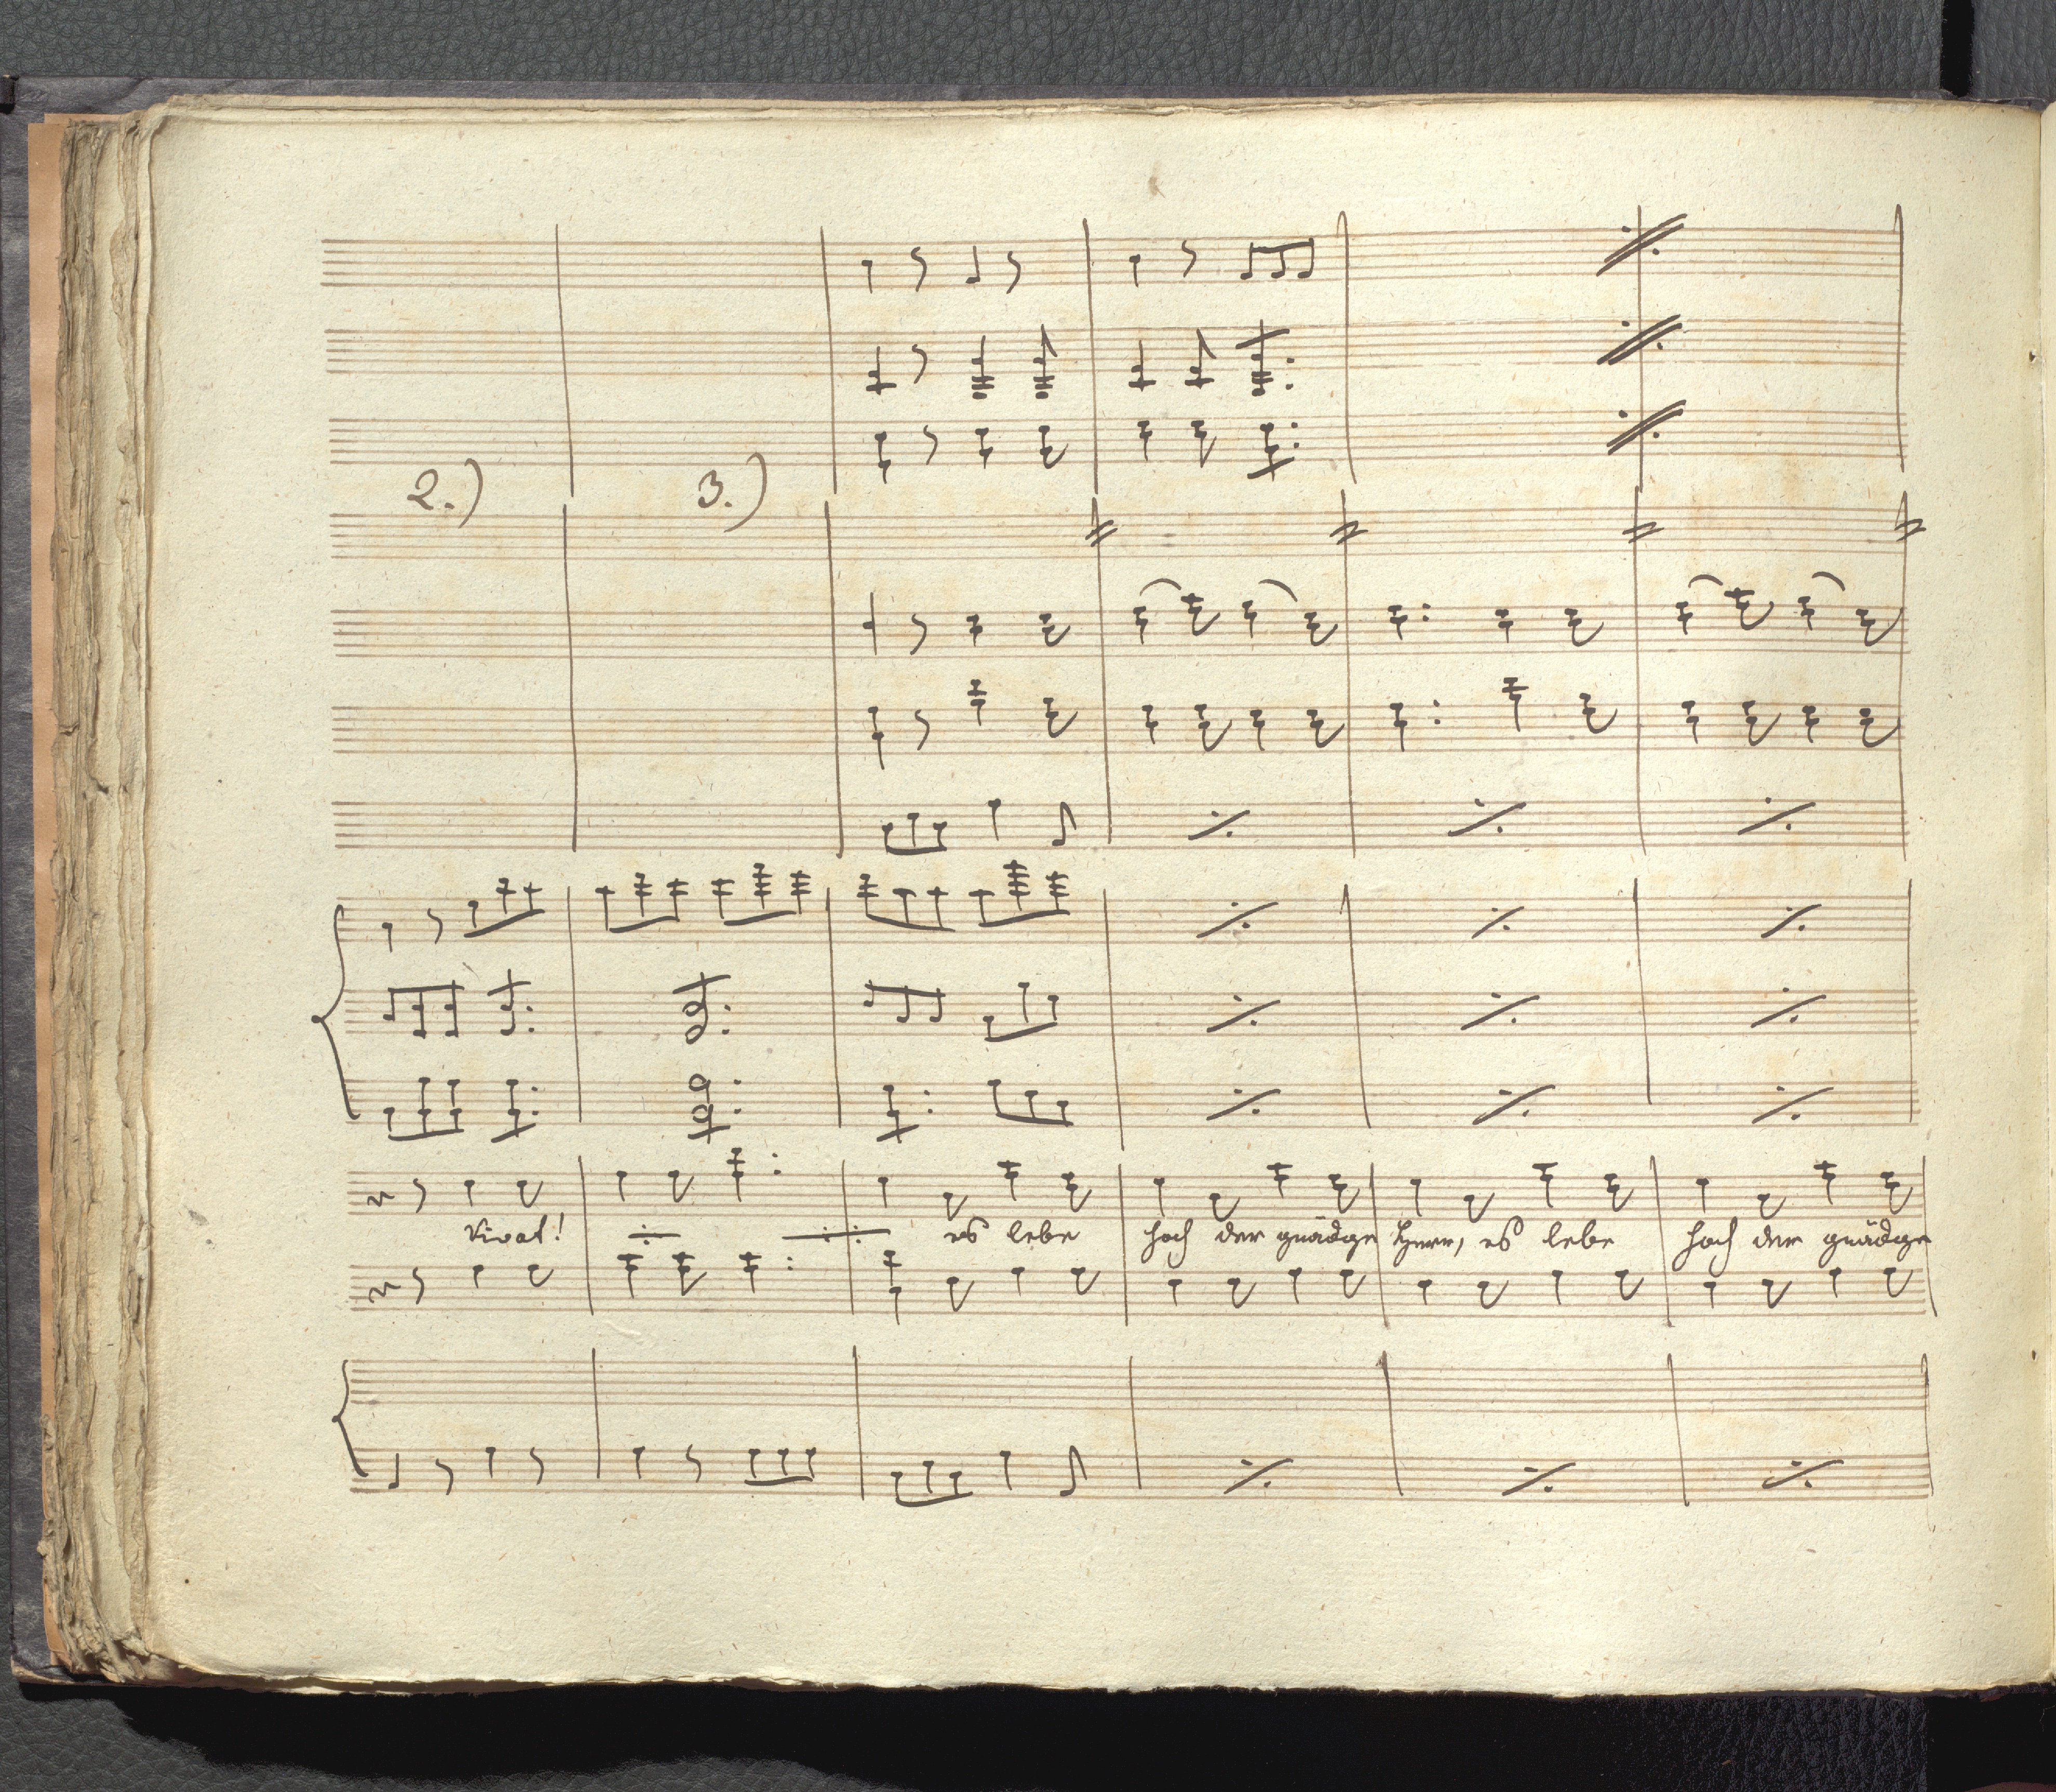 2.) 3.)
Vivat! es lebe hoch der gnädge Herr, es lebe hoch der gnädge